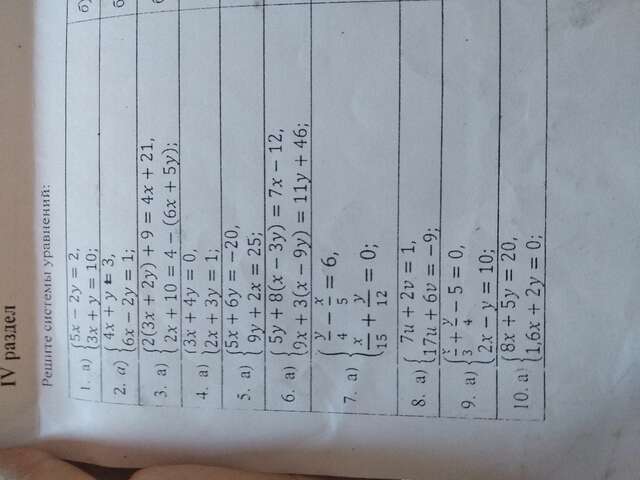 IV раздел
Решите системы уравнений:
1. а) {5x − 2y = 2,
3x + y = 10;
2. а) {4x + y = 3,
6x − 2y = 1;
3. а) {2(3x + 2y) + 9 = 4x + 21,
2x + 10 = 4 − (6x + 5y);
4. а) {3x + 4y = 0,
2x + 3y = 1;
5. а) {5x + 6y = −20,
9y + 2x = 25;
6. а) {5y + 8(x − 3y) = 7x − 12,
9x + 3(x − 9y) = 11y + 46;
7. а) {y/4 − x/5 = 6,
x/15 + y/12 = 0;
8. а) {7u + 2v = 1,
17u + 6v = −9;
9. а) {x/3 + y/4 − 5 = 0,
2x − y = 10;
10. а) {8x + 5y = 20,
1,6x + 2y = 0;
б)
б
б